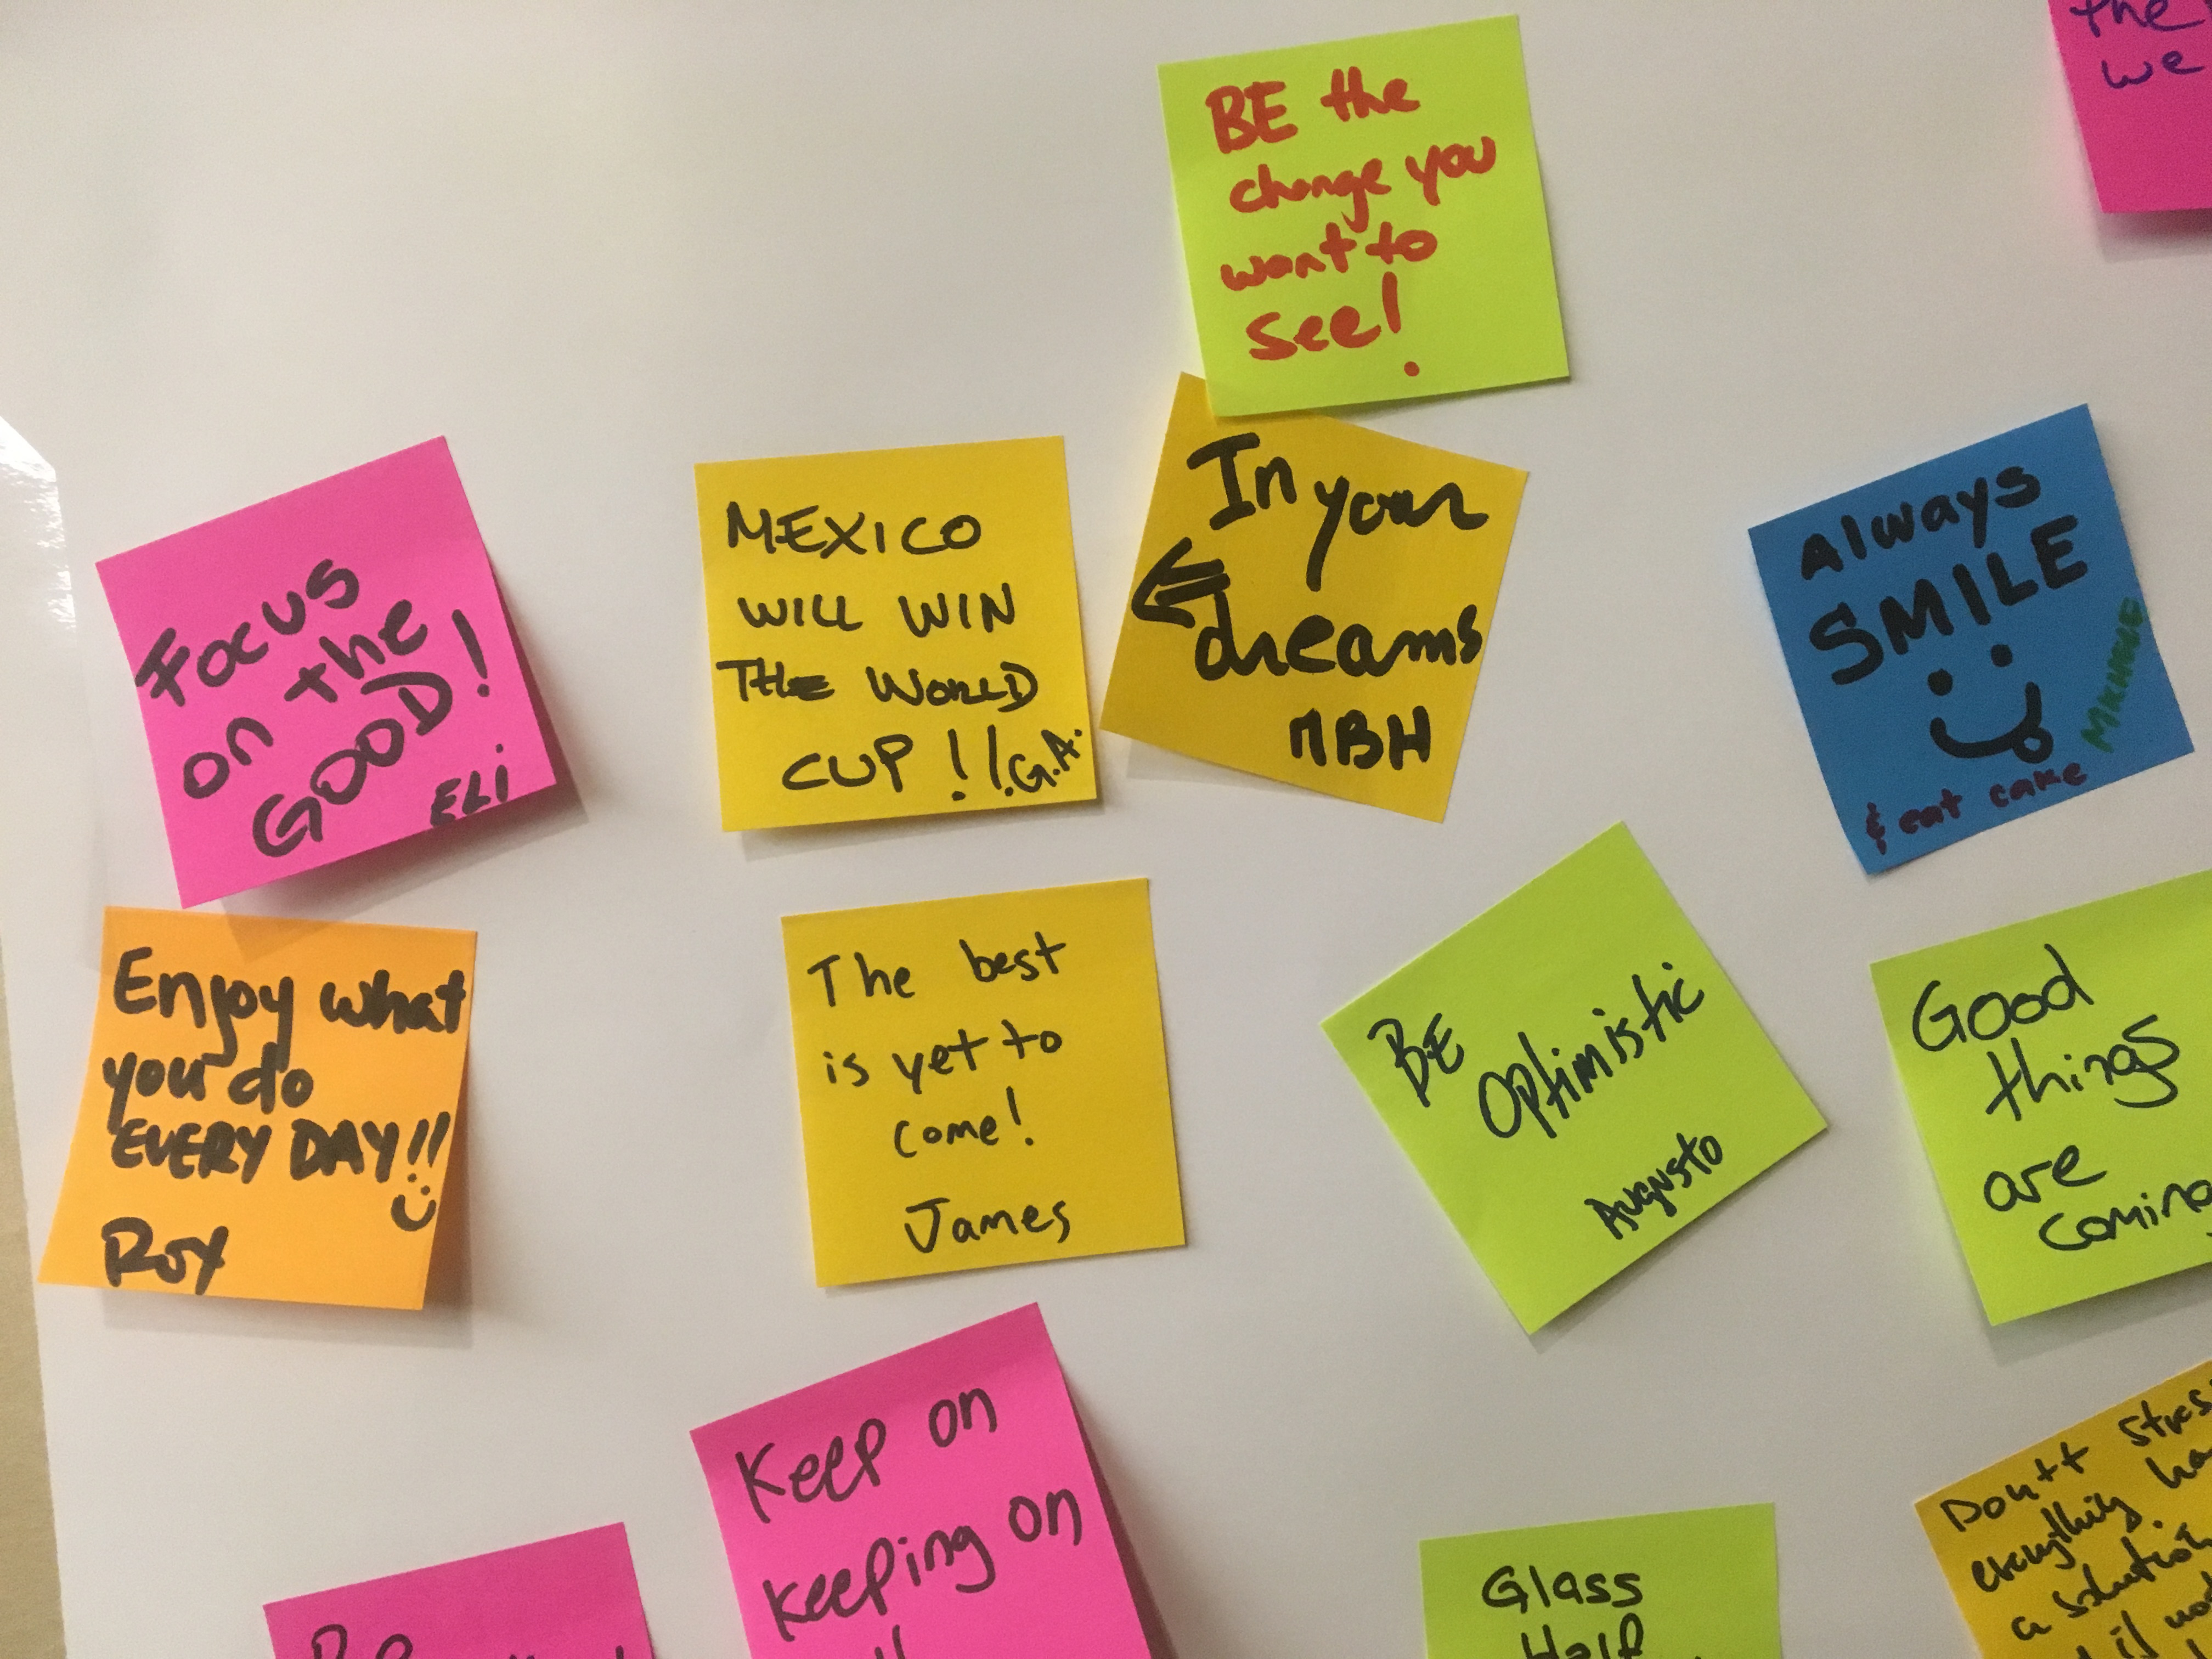 the
we
BE the
change you
want to
see!
Focus
on the
GOOD!
ELi
MEXICO
WILL WIN
THE WORLD
CUP!! G.A.
In your
dreams
MBH
Always
SMILE
& eat cake
Enjoy what
you do
EVERY DAY!!
Roy
The best
is yet to
come!
James
BE
Optimistic
Augusto
Good
things
are
coming
Keep on
keeping on
Glass
Half
Don't
everything
a solution